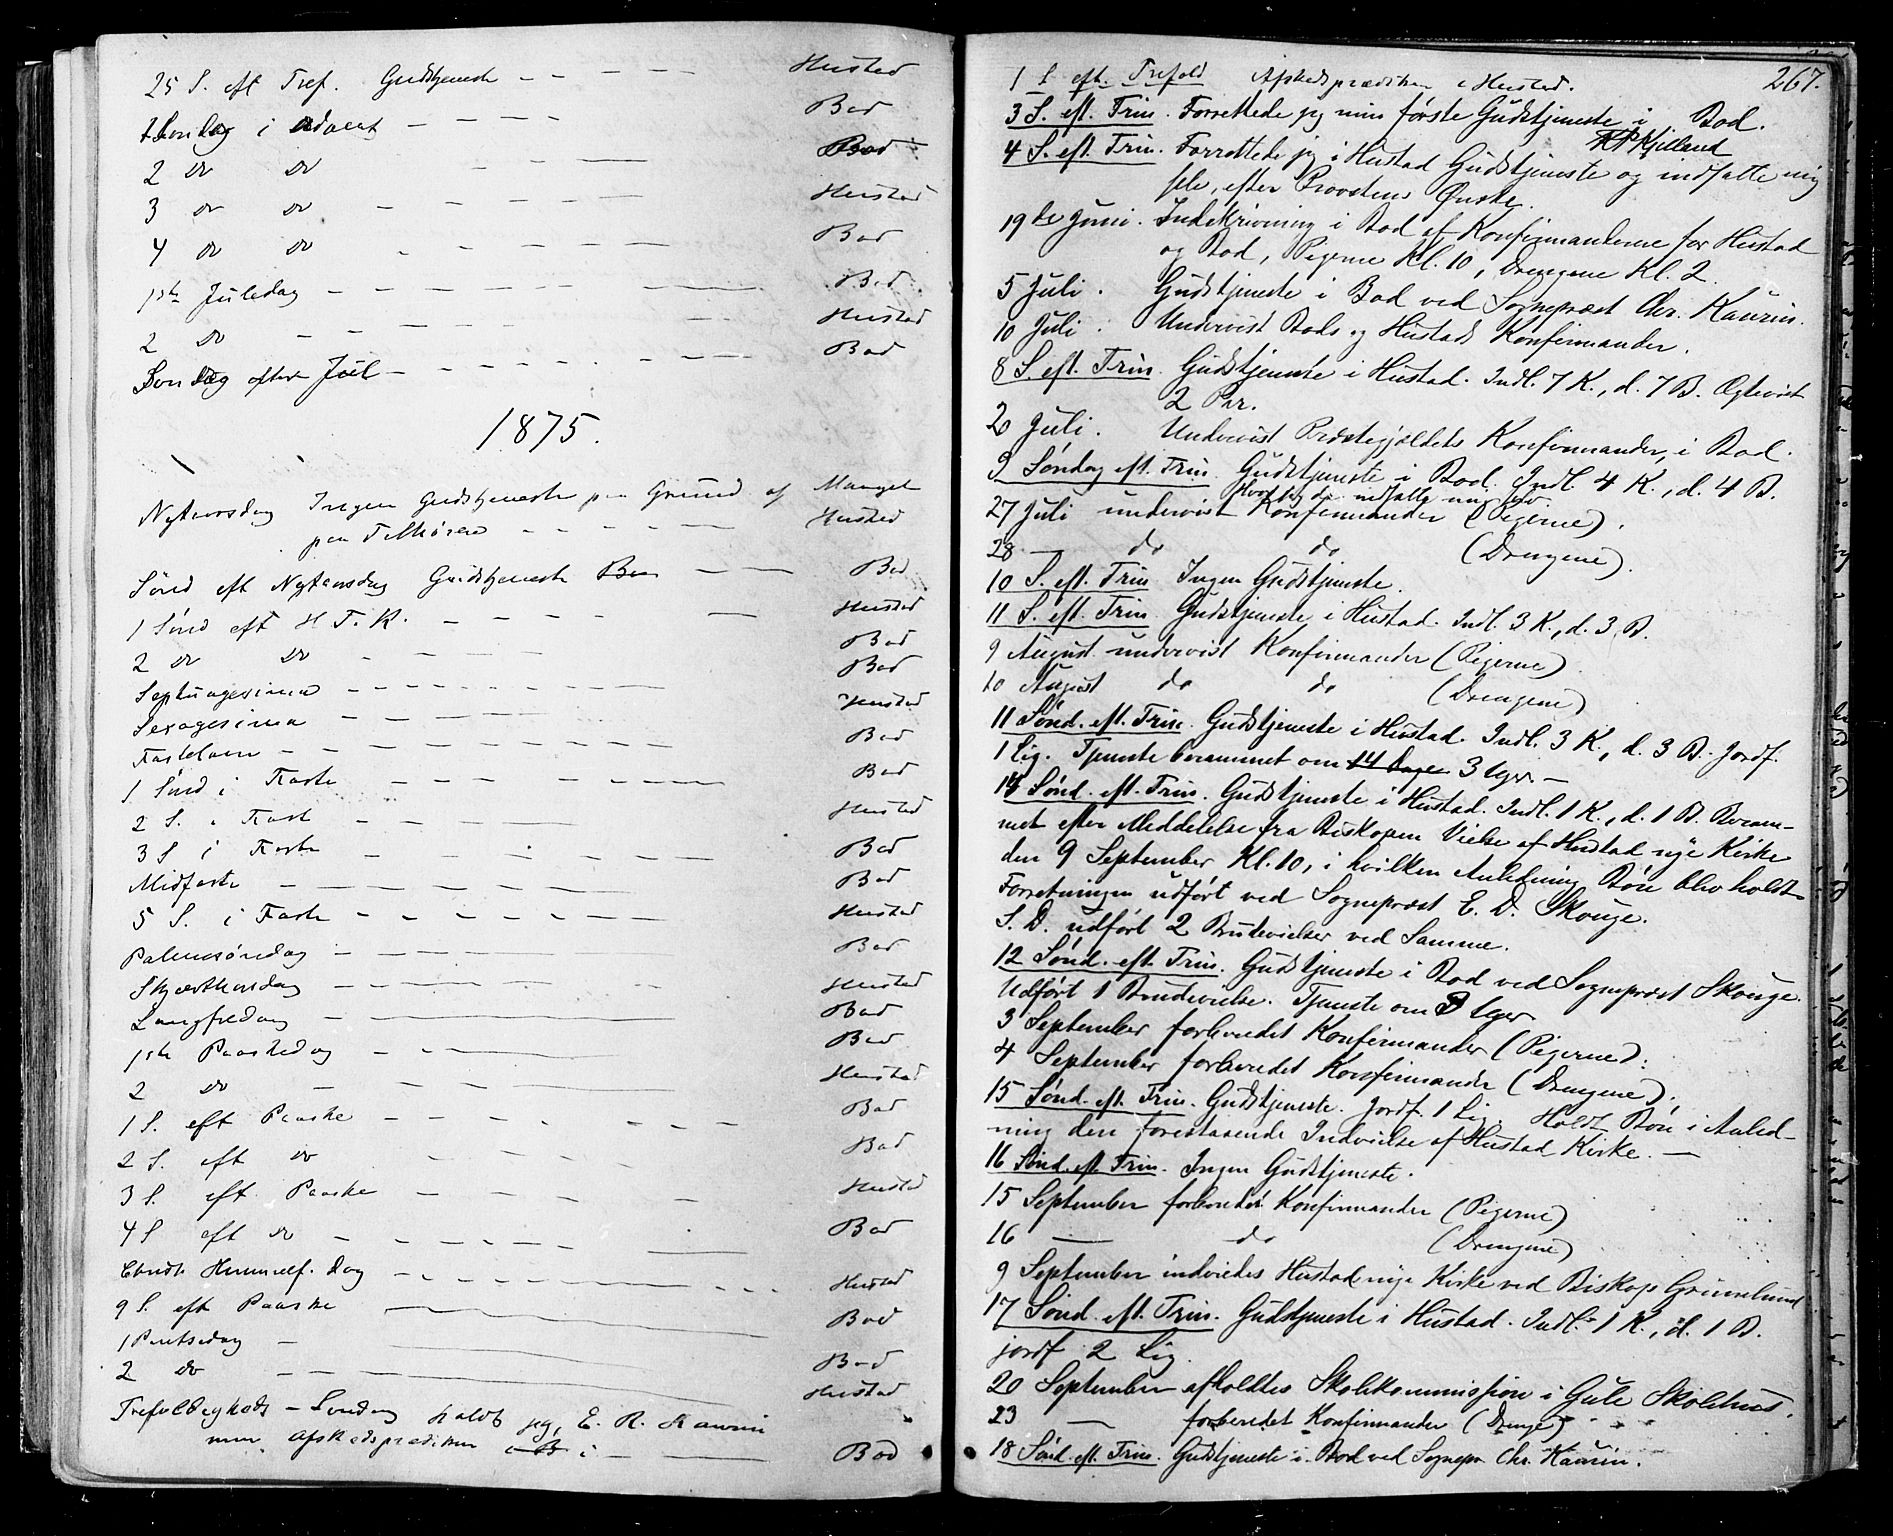 25 S. eft Tref. Gudstjeneste - - - - - Hustad
1 Søndag i Advent - - - - Bod
2 do do - - - Bod
3 do do - - - - - Hustad
4 do do - - - - - Bod
1ste Juledag - - - - - - Bod
2 do - - - - - Hustad
Søndag efter Juel - - - - - - Bod
1875.
Nytaarsdag Ingen Gudstjeneste paa Grund af Mangel
paa Tilhørere - - - - Hustad
Sønd eft Nytaarsdag Gudstjeneste - - - Bod
1 Sønd eft H. T. K. - - - - - - Hustad
2 do do - - - Bod
Septuagesima - - - - - - Bod
Sexagesima - - - - - - Hustad
Fastelavn - - - - - - Bod
1 Sønd i Faste - - - - - - Bod
2 S. i Faste - - - - Hustad
3 S i Faste - - - - - Bod
Midfaste - - - - - Bod
5 S. i Faste - - - - - - Hustad
Palmesøndag - - - - - Bod
Skjærthorsdag - - - - - Hustad
Langfredag - - - - Bod
1ste Paaskedag - - - Bod
2 do - - - - - Hustad
1 S. eft Paaske - - - - - - - Bod
2 S. eft do - - - - - Bod
3 S. eft Paaske - - - - - Hustad
4 S eft do - - - - - - Bod
Christi Himmelf. Dag - - - - - - Hustad
9 S. eft Paaske - - - Bod
1 Pintsedag - - - Bod
2 do - - - Hustad
Trefoldigheds-Søndag holdt jeg, E. R. Kaurin
min Afskedspræediken i - - - Bod
267.
1 S. eft. Trefold Afskedsprædiken i Hustad.
3 S. eft. Trin. Forrettede jeg min første Gudstjeneste i Bod.
Kjelland
4 S. eft. Trin. Forrettede jeg i Hustad Gudstjeneste og indsatte mig
selv, efter Provstens Ønske.
19de Juni. Indskrivning i Bod af Konfirmanderne for Hustad
og Bod, Pigerne Kl. 10, Drengene Kl. 2.
5 Juli. Gudstjeneste i Bod ved Sognepræst Chr. Kaurin.
10 Juli. Undervist Bods og Hustads Konfirmander.
8 S. eft. Trin. Gudstjeneste i Hustad. Indl. 7 K., d. 7 B. Ægteviet
2 Par.
20 Juli. Undervist Præstegjældets Konfirmander, i Bod.
9 Søndag eft. Trin. Gudstjeneste i Bod. Indl. 4 K., d. 4 B.
Provsten indsatte mig
27 Juli undervist Konfirmander (Pigerne).
28 — do do (Drengene).
10 S. eft. Trin Ingen Gudstjeneste.
11 S. eft. Trin. Gudstjeneste i Hustad. Indl. 3 K., d. 3 B.
9 August undervist Konfirmander (Pigerne)
10 August do do (Drengene)
11 Sønd. eft. Trin. Gudstjeneste i Hustad. Indl. 3 K., d. 3 B. Jordf.
1 Lig. Tjeneste berammet om 14 Dage 3 Uger. —
14 Sønd. eft. Trin. Gudstjeneste i Hustad. Indl. 1 K., d. 1 B. Beram-
met efter Meddelelse fra Biskopen Vielse af Hustad nye Kirke
den 9 September Kl. 10, i hvilken Anledning Bøn blev holdt
Forretningen udført ved Sognepræst E. D. Skouge.
S. D. udført 2 Brudevielser ved Samme.
12 Sønd. eft. Trin. Gudstjeneste i Bod ved Sognepræst Skouge.
Udført 1 Brudevielse. Tjeneste om 3 Uger
3 September forberedet Konfirmander (Pigerne).
4 September forberedet Konfirmander (Drengene).
15 Sønd. eft. Trin. Gudstjeneste. Jordf. 1 Lig. Holdt Bøn i Anled-
ning den forestaaende Indvielse af Hustad Kirke. —
16 Sønd. eft. Trin. Ingen Gudstjeneste.
15 September forberedet Konfirmander (Pigerne)
16 — do (Drengene)
9 September indviedes Hustad nye Kirke ved Biskop Grimelund
17 Sønd. eft. Trin. Gudstjeneste i Hustad. Indl. 1 K., d. 1 B.
jordf 2 Lig.
20 September afholdtes Skolekommission i Gule Skolehus.
23 — forberedet Konfirmander (Drenge)
18 Sønd. eft. Trin. Gudstjeneste i Bod ved Sognepr Chr. Kaurin.